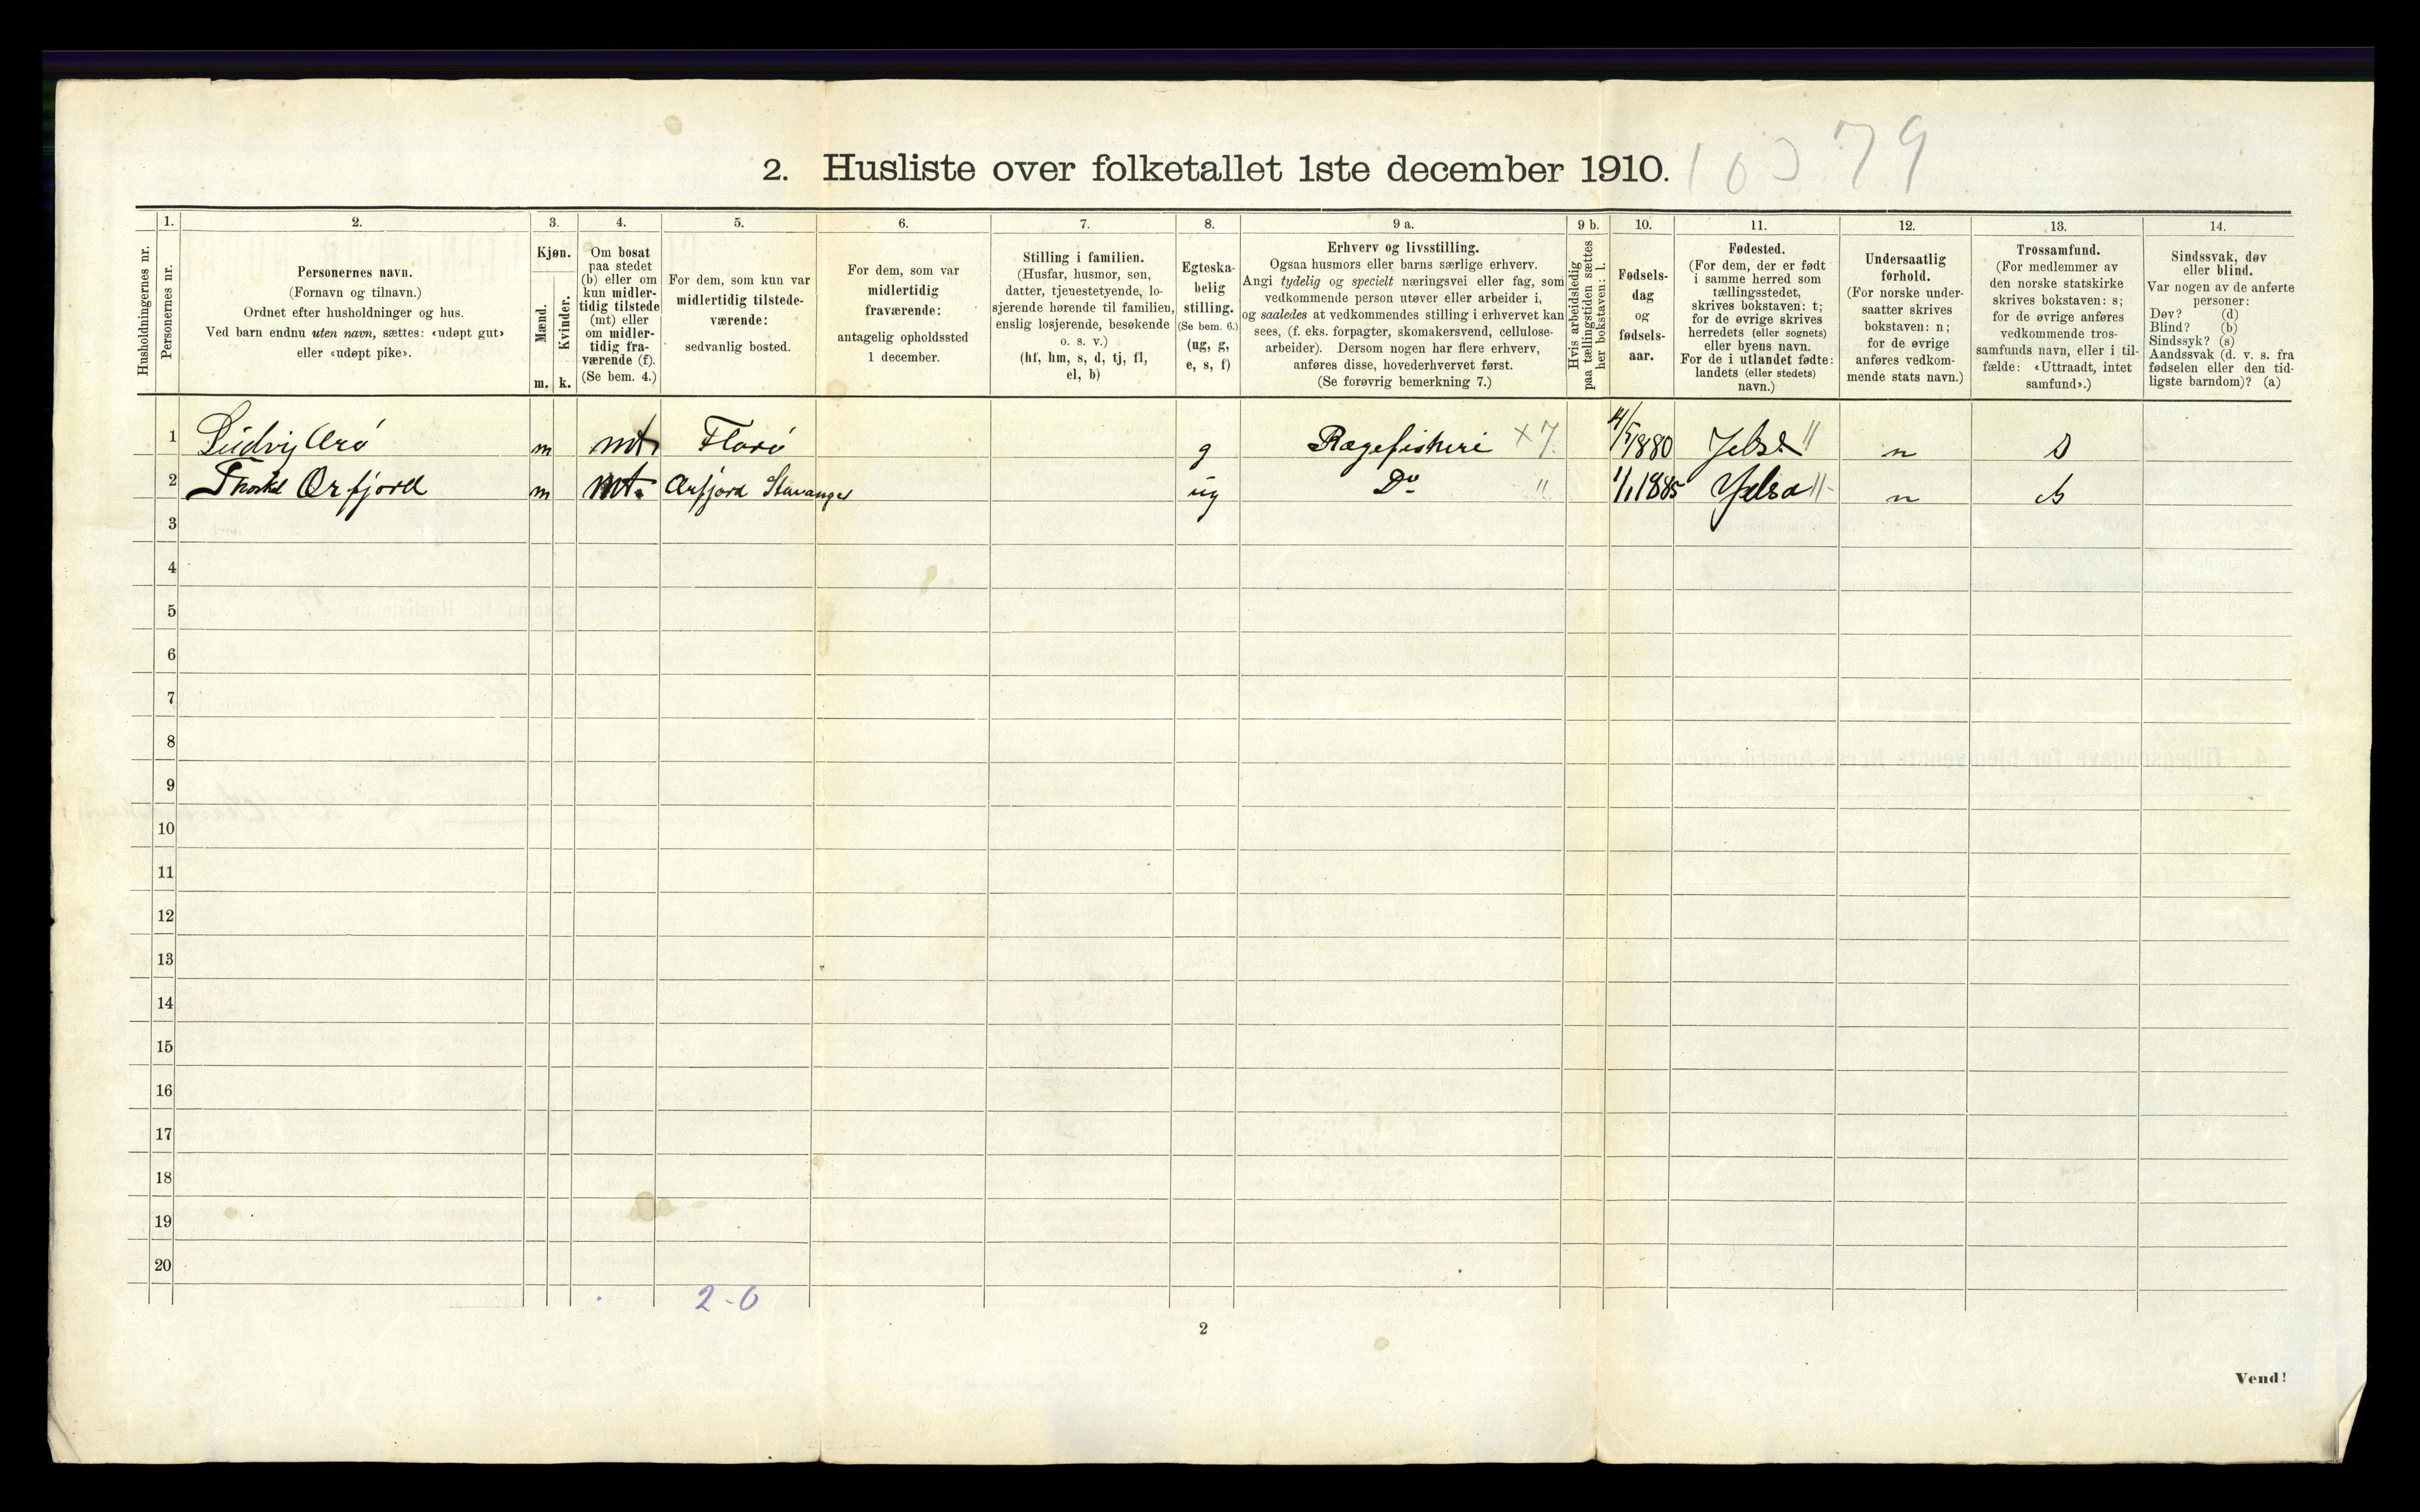 2. Husliste over folketallet 1ste december 1910.
79
Husholdningernes nr.
1.
Personernes nr.
2.
Personernes navn.
(Fornavn og tilnavn.)
Ordnet efter husholdninger og hus.
Ved barn endnu uten navn, sættes: «udøpt gut»
eller «udøpt pike».
3.
Kjøn.
Mænd.
m.
Kvinder.
k.
4.
Om bosat
paa stedet
(b) eller om
kun midler-
tidig tilstede
(mt) eller
om midler-
tidig fra-
værende (f).
(Se bem. 4.)
5.
For dem, som kun var
midlertidig tilstede-
værende:
sedvanlig bosted.
6.
For dem, som var
midlertidig
fraværende:
antagelig opholdssted
1 december.
7.
Stilling i familien.
(Husfar, husmor, søn,
datter, tjenestetyende, lo-
sjerende hørende til familien,
enslig losjerende, besøkende
o. s. v.)
(hf, hm, s, d, tj, fl,
el, b)
8.
Egteska-
belig
stilling.
(Se bem. 6.)
(ug, g,
e, s, f)
9 a.
Erhverv og livsstilling.
Ogsaa husmors eller barns særlige erhverv.
Angi tydelig og specielt næringsvei eller fag, som
vedkommende person utøver eller arbeider i,
og saaledes at vedkommendes stilling i erhvervet kan
sees, (f. eks. forpagter, skomakersvend, cellulose-
arbeider). Dersom nogen har flere erhverv,
anføres disse, hovederhvervet først.
(Se forøvrig bemerkning 7.)
9 b.
Hvis arbeidsledig
paa tællingstiden sættes
her bokstaven: l.
10.
Fødsels-
dag
og
fødsels-
aar.
11.
Fødested.
(For dem, der er født
i samme herred som
tællingsstedet,
skrives bokstaven: t;
for de øvrige skrives
herredets (eller sognets)
eller byens navn.
For de i utlandet fødte:
landets (eller stedets)
navn.)
12.
Undersaatlig
forhold.
(For norske under-
saatter skrives
bokstaven: n;
for de øvrige
anføres vedkom-
mende stats navn.)
13.
Trossamfund.
(For medlemmer av
den norske statskirke
skrives bokstaven: s;
for de øvrige anføres
vedkommende tros-
samfunds navn, eller i til-
fælde: «Uttraadt, intet
samfund».)
14.
Sindssvak, døv
eller blind.
Var nogen av de anførte
personer:
Døv? (d)
Blind? (b)
Sindssyk? (s)
Aandssvak (d. v. s. fra
fødselen eller den tid-
ligste barndom)? (a)
1 Ludvig Arø m mt Florø g Ragefiskeri x 7. 1880 Jelse " n s
2 Ørfjord m mt. Ørfjord Stavanger ug Do " 1/1 1885 Jelsa " n s
3
4
5
6
7
8
9
10
11
12
13
14
15
16
17
18
19
20
2-0
2
Vend!